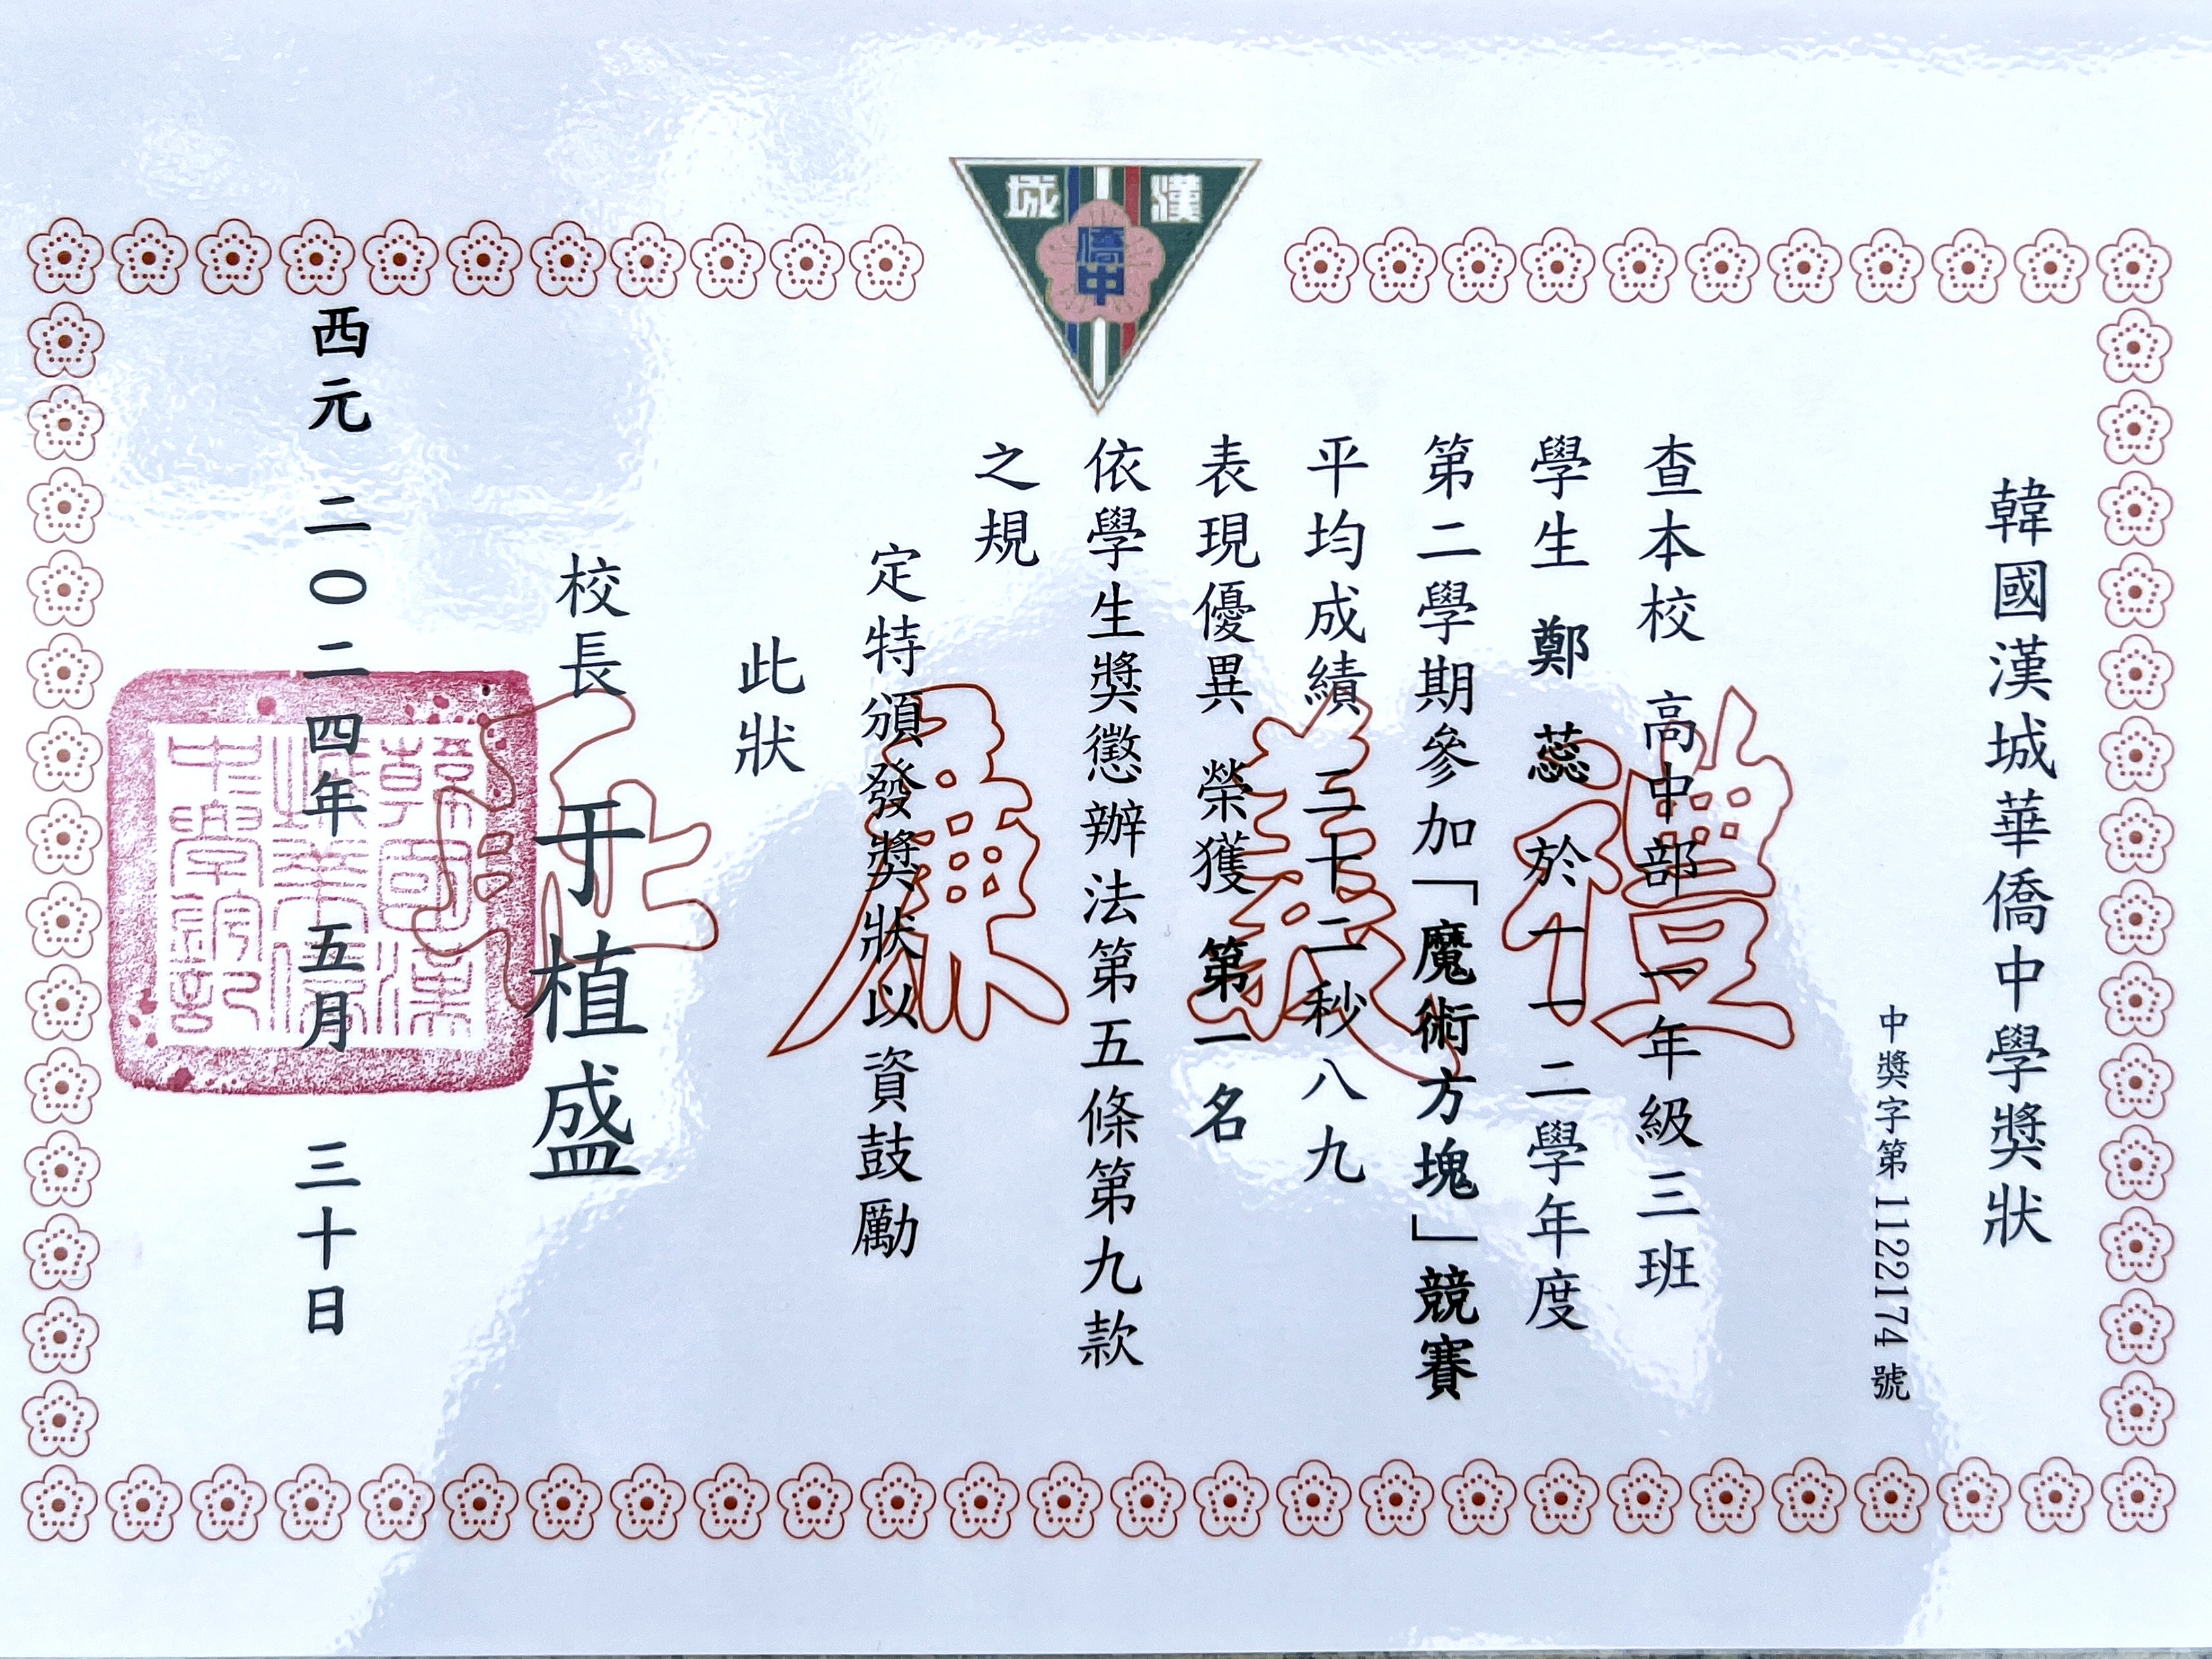 漢城
僑中
韓國漢城華僑中學獎狀
中獎字第 1122174 號
查本校 高中部 一年級三班
學生 鄭 蕊 於 一一二學年度
第二學期參加「魔術方塊」競賽
平均成績 三十二秒八九
表現優異 榮獲 第一名
依學生獎懲辦法第五條第九款
之規
定特頒發獎狀以資鼓勵
此狀
校長 于植盛
西元 二〇二四年 五月 三十日
禮義廉恥
韓國漢
城華僑
中學鈐記